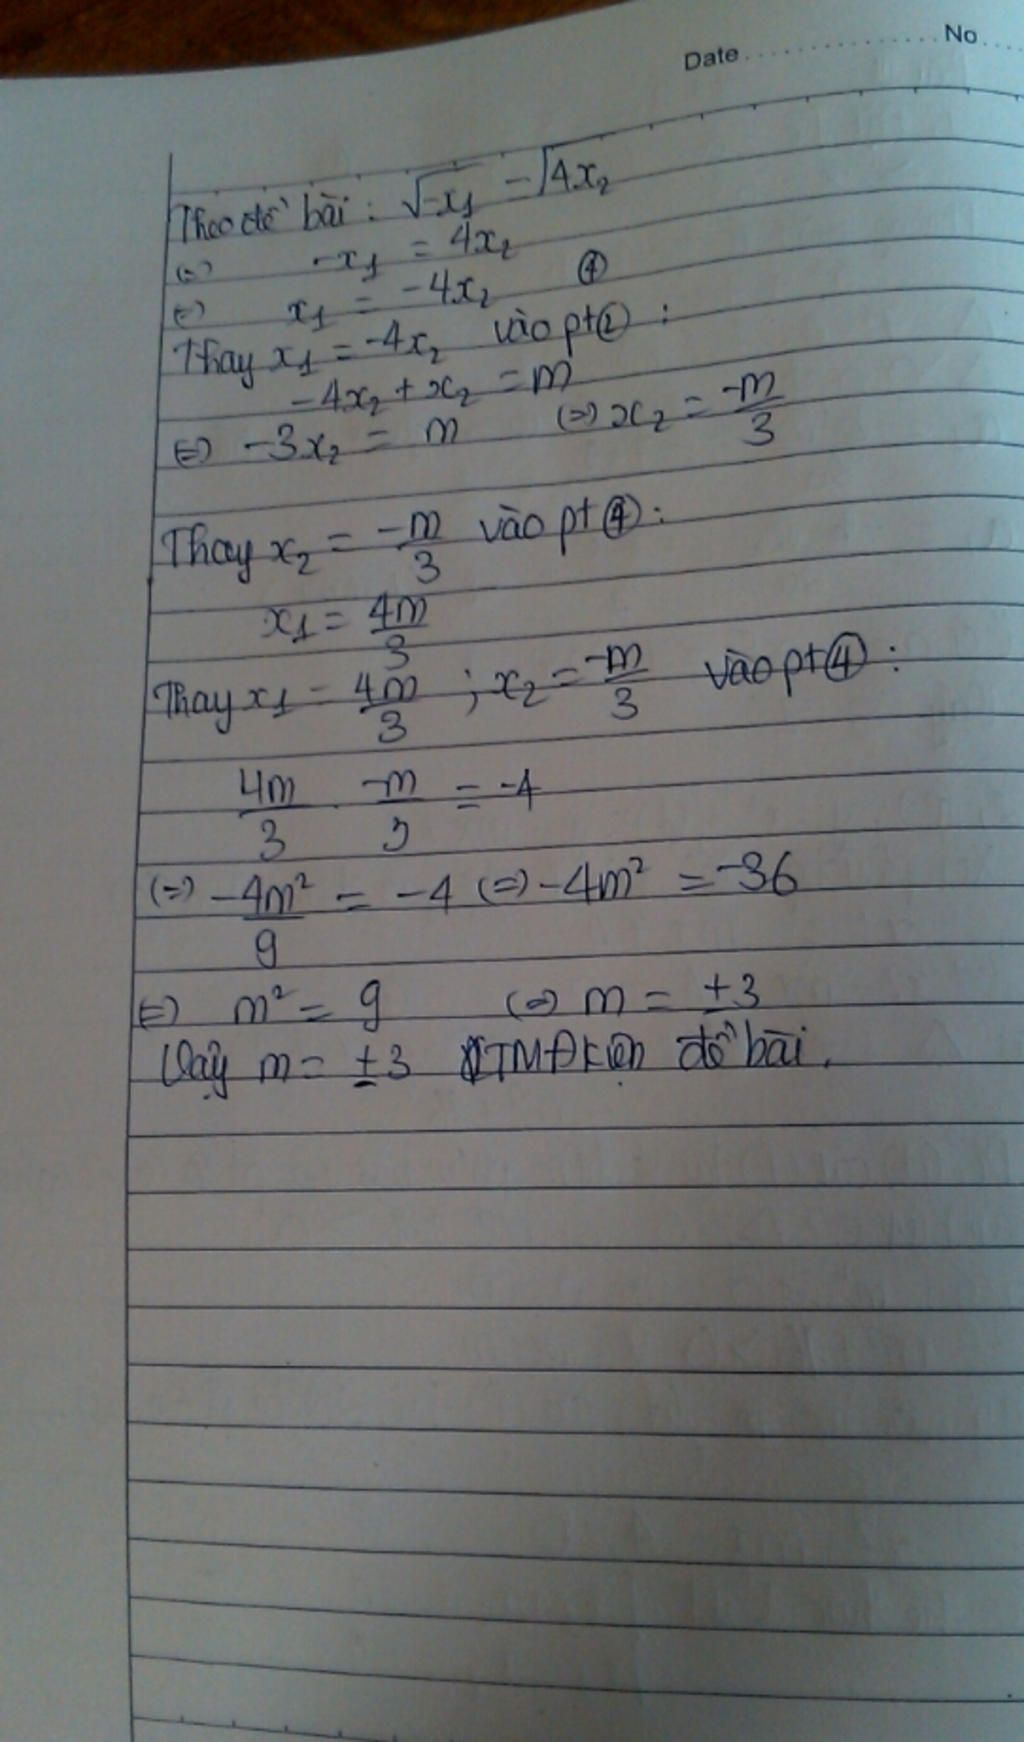 Date.................No....
Theo đề bài : √-x₁ - √4x₂
(=) -x₁ = 4x₂
(=) x₁ = -4x₂ ④
Thay x₁ = -4x₂ vào pt② :
-4x₂ + x₂ = m
(=) -3x₂ = m (=) x₂ = -m/3
Thay x₂ = -m/3 vào pt④ :
x₁ = 4m/3
Thay x₁ = 4m/3 ; x₂ = -m/3 vào pt④ :
4m/3 . -m/3 = -4
(=) -4m²/9 = -4 (=) -4m² = -36
(=) m² = 9 (=) m = ±3
Vậy m = ±3 TMĐKiện đề bài.